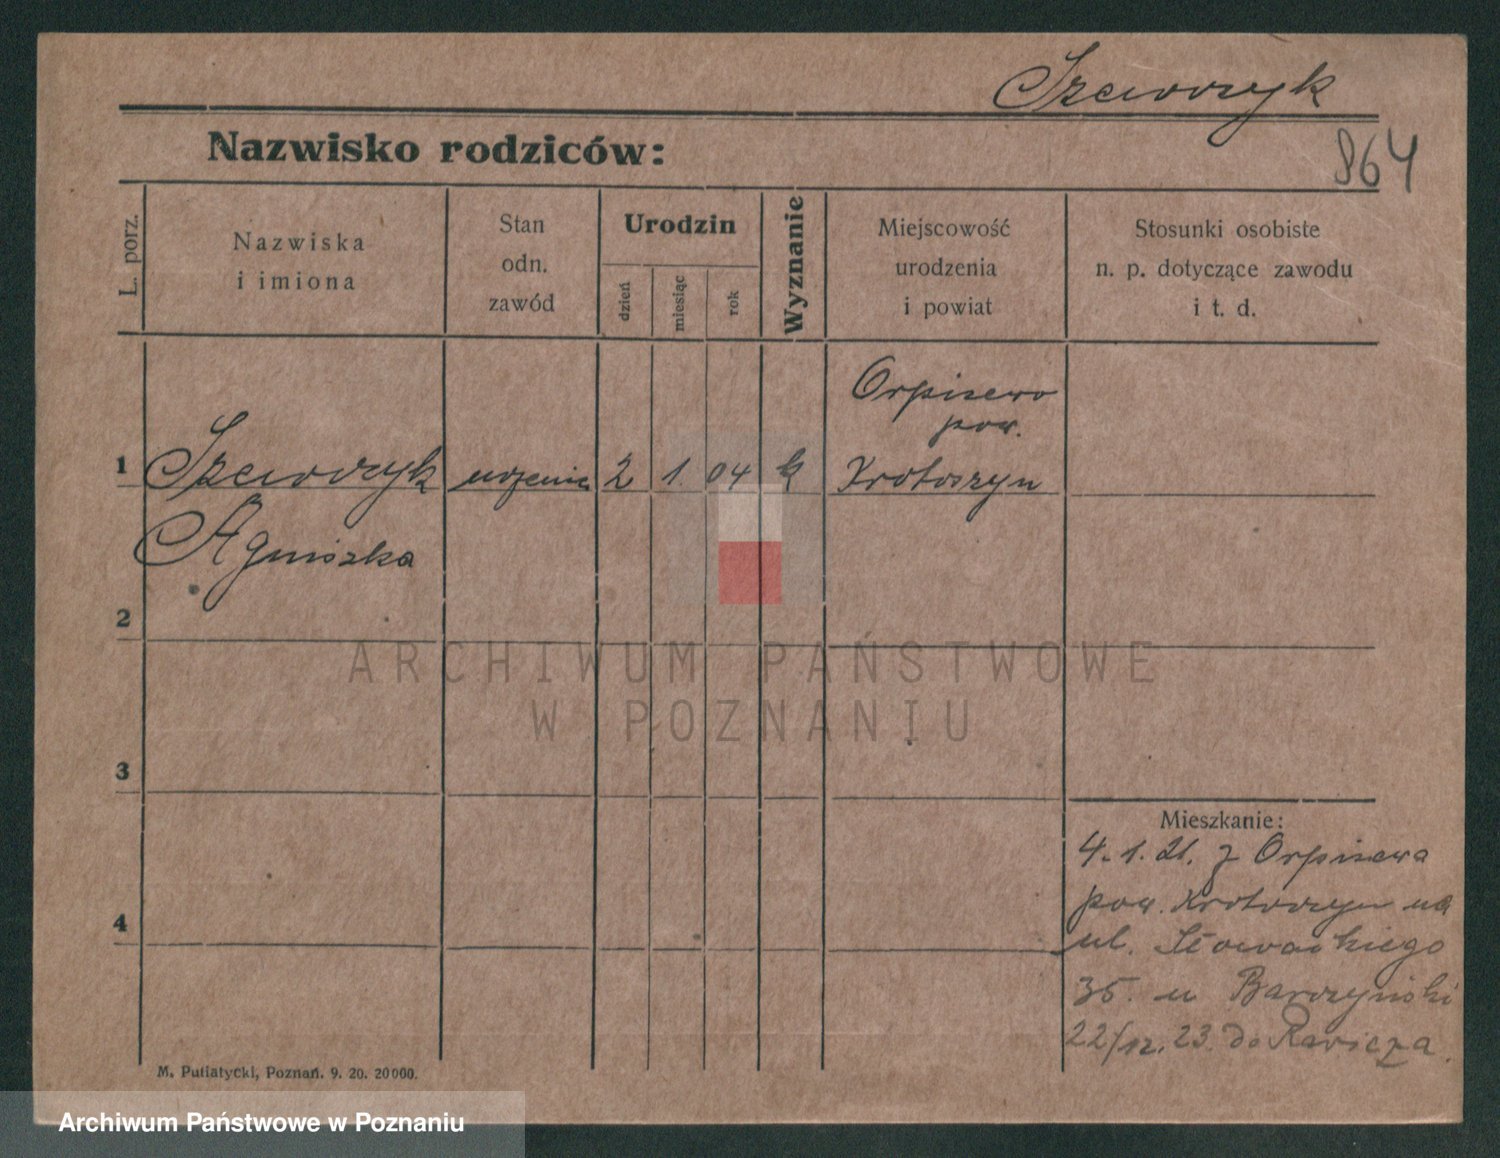 Szewczyk
864
Nazwisko rodziców:
L. porz.
Nazwiska
i imiona
Stan
odn.
zawód
Urodzin
dzień
miesiąc
rok
Wyznanie
Miejscowość
urodzenia
i powiat
Stosunki osobiste
n. p. dotyczące zawodu
i t. d.
Orpiszewo
pow.
1 Szewczyk uczenica 2 1. 04 k Krotoszyn
Agnieszka
2
3
4
ARCHIWUM PAŃSTWOWE
W POZNANIU
Mieszkanie:
4.1.21. z Orpiszewa
pow. Krotoszyn na
ul. Słowackiego
35. u
22/12. 23. do Rawicza.
M. Putiatycki, Poznań. 9. 20. 20000.
Archiwum Państwowe w Poznaniu